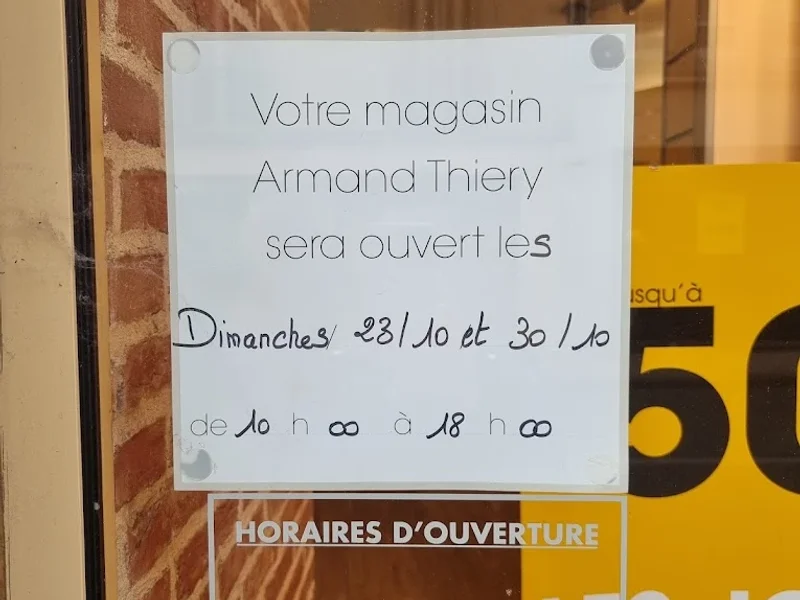 Votre magasin
Armand Thiery
sera ouvert les
Dimanches 23/10 et 30/10
de 10 h 00 à 18 h 00
usqu'à
50
HORAIRES D'OUVERTURE